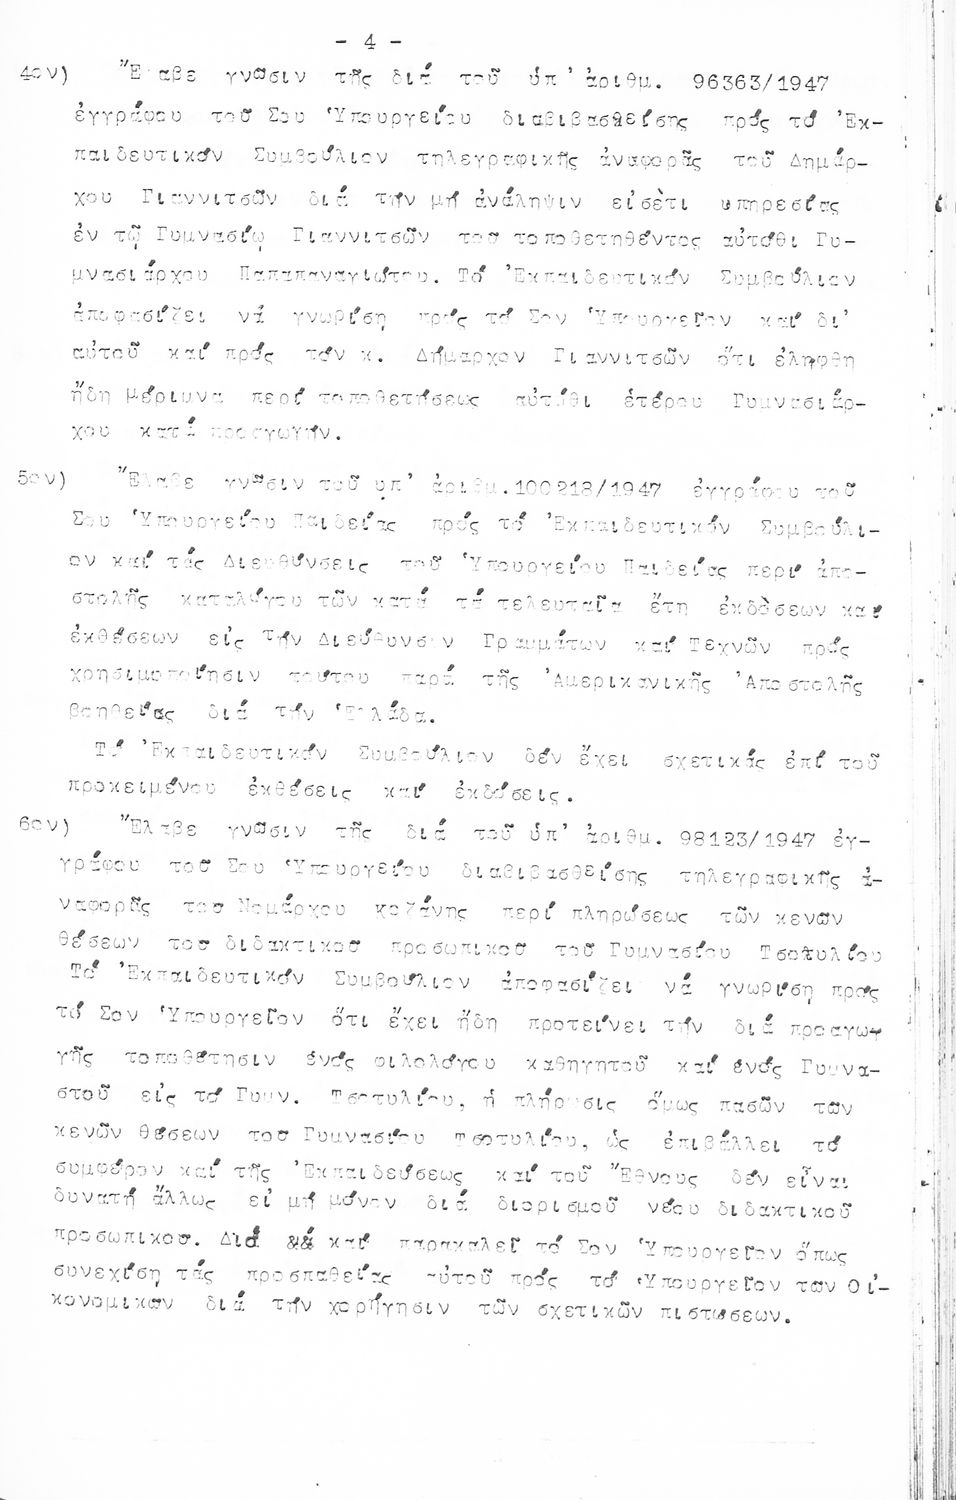 - 4 -
4ον) Ἔλαβε γνῶσιν τῆς διά τοῦ ὑπ' ἀριθμ. 96363/1947
ἐγγράφου τοῦ Σου Ὑπουργείου διαβιβασθείσης πρός τό Ἐκ-
παιδευτικόν Συμβούλιον τηλεγραφικῆς ἀναφορᾶς τοῦ Δημάρ-
χου Γιαννιτσῶν διά τήν μή ἀνάληψιν εἰσέτι υπηρεσίας
ἐν τῷ Γυμνασίῳ Γιαννιτσῶν του τοποθετηθέντος αὐτόθι Γυ-
μνασιάρχου Παπαπαναγιώτου. Τό Ἐκπαιδευτικόν Συμβούλιον
ἀποφασίζει νά γνωρίση πρός τό Σον Ὑπουργεῖον καί δι'
αὐτοῦ καί πρός τόν κ. Δήμαρχον Γιαννιτσῶν ὅτι ἐλήφθη
ἤδη μέριμνα περί τοποθετήσεως αὐτόθι ἑτέρου Γυμνασιάρ-
χου κατά προαγωγήν.
5ον) Ἔλαβε γνῶσιν τοῦ υπ' ἀριθμ.100218/1947 ἐγγράφου τοῦ
Σου Ὑπουργείου Παιδείας πρός τό Ἐκπαιδευτικόν Συμβούλι-
ον καί τάς Διευθύνσεις τοῦ Ὑπουργείου Παιδείας περί ἀπο-
στολῆς καταλόγου τῶν κατά τά τελευταῖα ἔτη ἐκδόσεων καί
ἐκθέσεων εἰς τήν Διεύθυνσιν Γραμμάτων καί Τεχνῶν πρός
χρησιμοποίησιν τούτου παρά τῆς Ἀμερικανικῆς Ἀποστολῆς
βοηθείας διά τήν Ἑλλάδα.
Τό Ἐκπαιδευτικόν Συμβούλιον δέν ἔχει σχετικάς ἐπί τοῦ
προκειμένου ἐκθέσεις καί ἐκδόσεις.
6ον) Ἔλαβε γνῶσιν τῆς διά τοῦ ὑπ' ἀριθμ. 98123/1947 ἐγ-
γράφου τοῦ Σου Ὑπουργείου διαβιβασθείσης τηλεγραφικῆς ἀ-
ναφορᾶς του Νομάρχου Κοζάνης περί πληρώσεως τῶν κενῶν
θέσεων του διδακτικου προσωπικου τοῦ Γυμνασίου Τσοτυλίου
Τό Ἐκπαιδευτικόν Συμβούλιον ἀποφασίζει νά γνωρίση πρός
τό Σον Ὑπουργεῖον ὅτι ἔχει ἤδη προτείνει τήν διά προαγω-
γῆς τοποθέτησιν ἑνός φιλολόγου καθηγητοῦ καί ἑνός Γυμνα-
στοῦ εἰς τό Γυμν. Τσοτυλίου, ἡ πλήρωσις ὅμως πασῶν των
κενῶν θέσεων του Γυμνασίου Τσοτυλίου, ὡς ἐπιβάλλει τό
συμφέρον καί τῆς Ἐκπαιδεύσεως καί τοῦ Ἔθνους δέν εἶναι
δυνατή ἄλλως εἰ μή μόνον διά διορισμοῦ νέου διδακτικοῦ
προσωπικου. Διό καί παρακαλεῖ τό Σον Ὑπουργεῖον ὅπως
συνεχίση τάς προσπαθείας αὐτοῦ πρός τό Ὑπουργεῖον των Οἰ-
κονομικων διά τήν χορήγησιν τῶν σχετικῶν πιστώσεων.